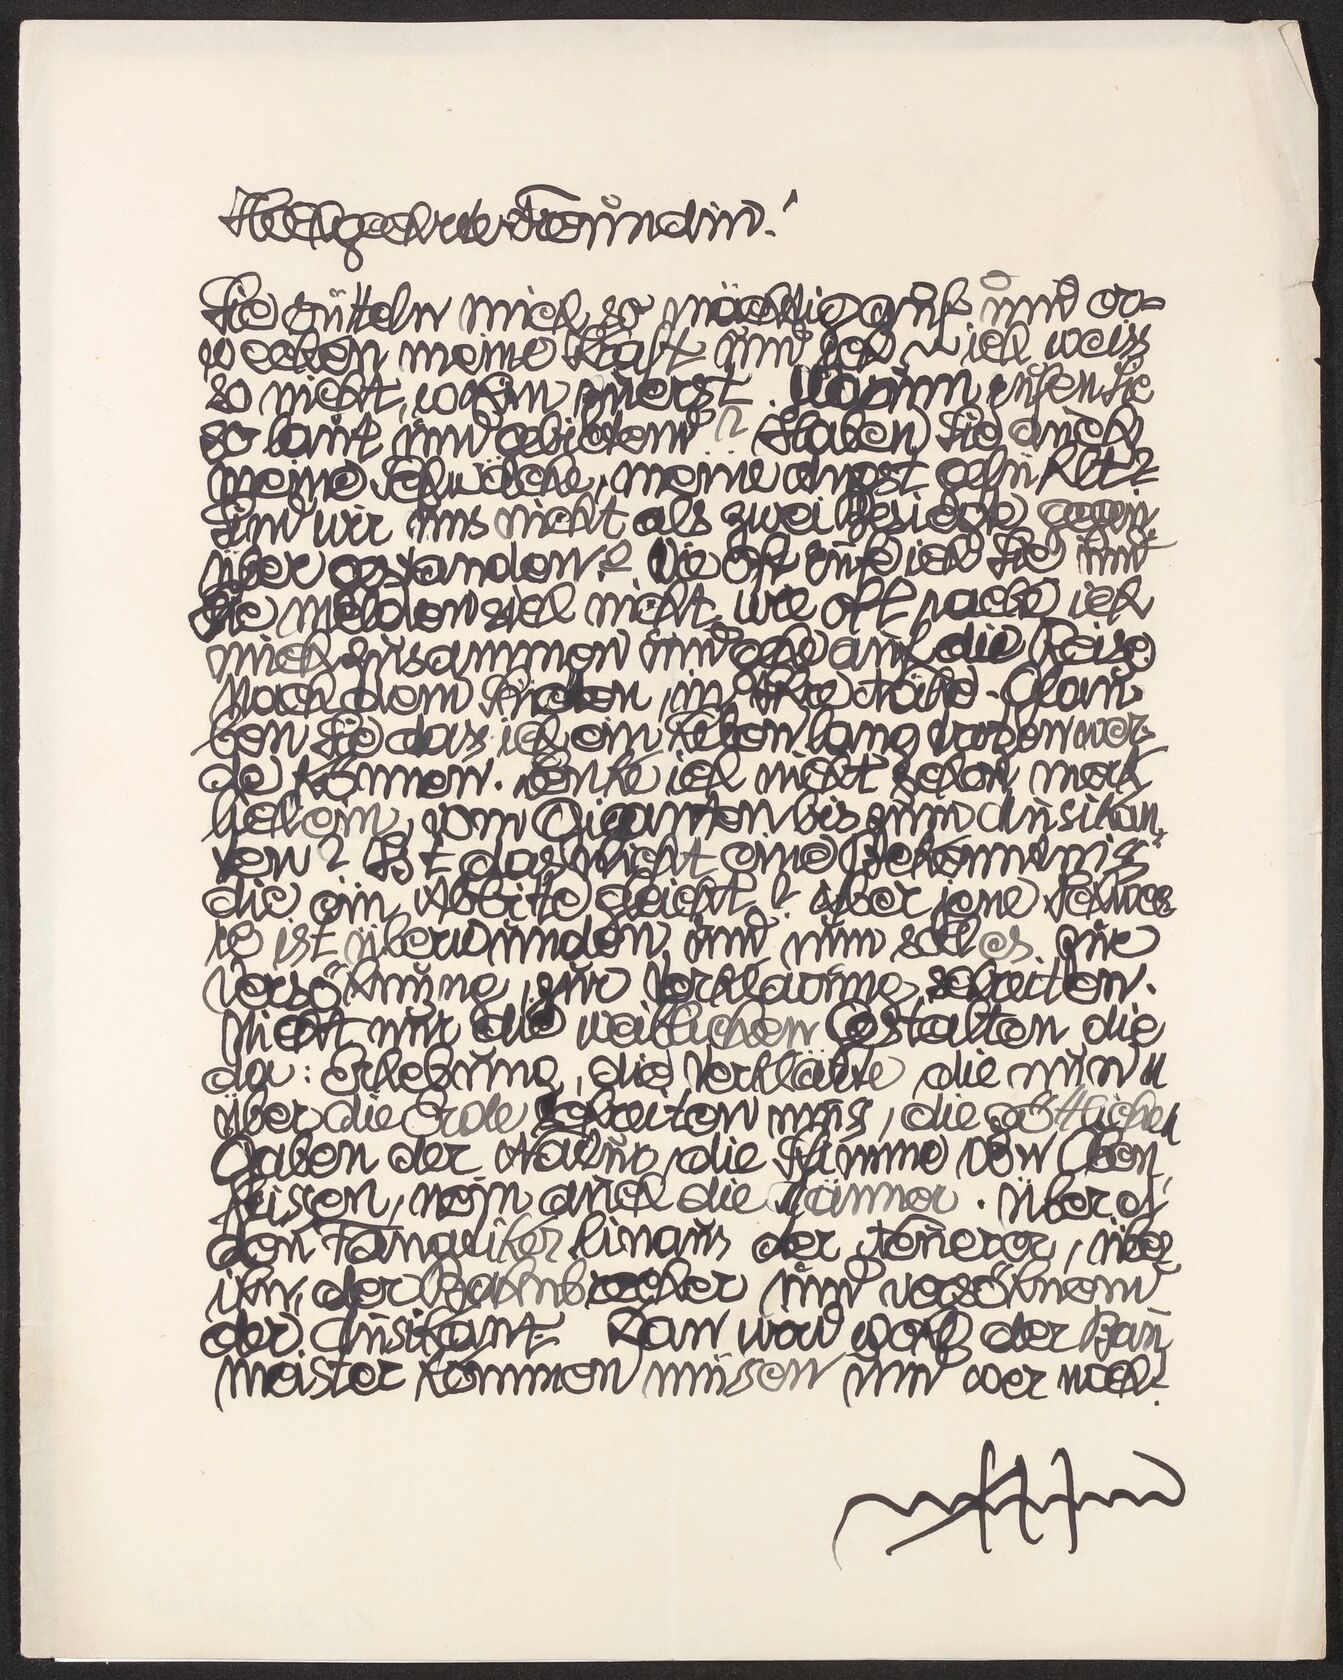 Hochgeehrte Freundin!
Sie rütteln mich so mächtig auf und er-
wecken meine Kraft und doch ich weiss
so nicht, wohin zuerst. Warum rufen Sie
so laut und gebietend? Haben Sie auch
meine Schwäche, meine Angst gefühlt?
Sind wir uns nicht als zwei Besiegte gegen
über gestanden? Wie oft rufe ich Sie und
Sie melden sich nicht, wie oft packe ich
mich zusammen und gehe auf die Reise
nach dem Süden, in Ihre Nähe. Glau
ben Sie das ich ein Leben lang warten wer-
de können. Denke ich nicht schon nach
heim, vom Giganten bis zum Musikan
ten? Ist das nicht eine Bekenntnis
die ein Abbitte gleicht? Aber jene Schwe
re ist überwunden und nun soll es zur
Versöhnung, zur Verklärung schreiten.
Nicht nur die weiblichen Gestalten die
da: Erhebung, die Verklärte die nun
über die Erde schreiten muss, die göttlichen
Gaben der Natur, die Stimme von Oben
heissen, nein auch die Männer. Über
den Fanatiker hinaus der Neuerer, über
ihn, der Bahnbrecher und versöhnend
der Musikant. Dan wird wohl der Bau
meister kommen müssen und wer noch?